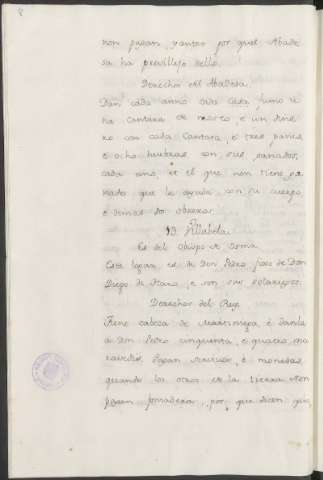 8
non pagan yantar por quel Abade
sa ha previllejo dello.
Derechos del Abadesa.
Dan cada anno cada casa fumo u
na cantara de mosto, e un dine
ro con cada cantara, e tres panes,
e ocho con sus
cada ano, et el que non tiene pa
nado que le ayuda con su cuerpo,
e demas so obreros.
13 Villabela.
Es del Obispo de Osma.
Este logar es de Don Pedro fijo de Don
Diego de Haro, e son sus solariegos.
Derechos del Rey.
Tiene cabeza de Martiniega, e dan la
a Don Pedro cinquenta, e quatro ma
ravedis, Pagan servicios, e monedas
quando los otros de la tierra. Non
pagan fonsadera, por que dicen que